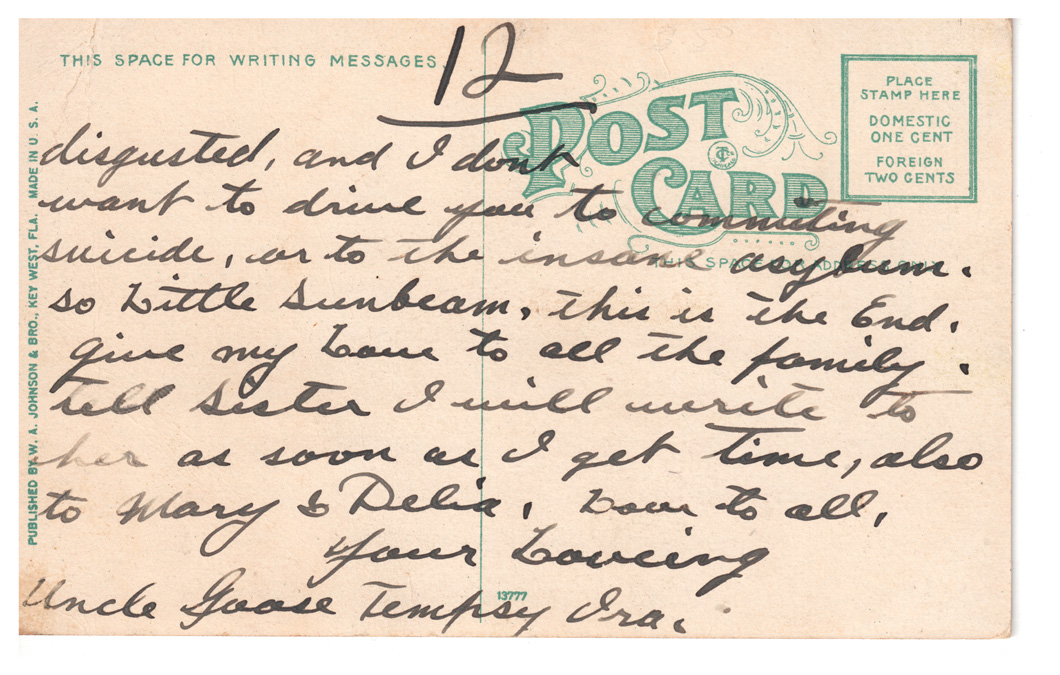 12
THIS SPACE FOR WRITING MESSAGES
POST
CARD
PLACE
STAMP HERE
DOMESTIC
ONE CENT
FOREIGN
TWO CENTS
THIS SPACE FOR ADDRESS ONLY
PUBLISHED BY W. A. JOHNSON & BRO., KEY WEST, FLA. MADE IN U. S. A.
disgusted, and I dont
want to drive you to commiting
suicide, or to the insane asylum.
so Little Sunbeam, this is the End.
give my Love to all the family.
tell Sister I will write to
her as soon as I get time, also
to Mary & Delia, Love to all,
Your Loveing
Uncle Goose Tempsy Ira.
13777